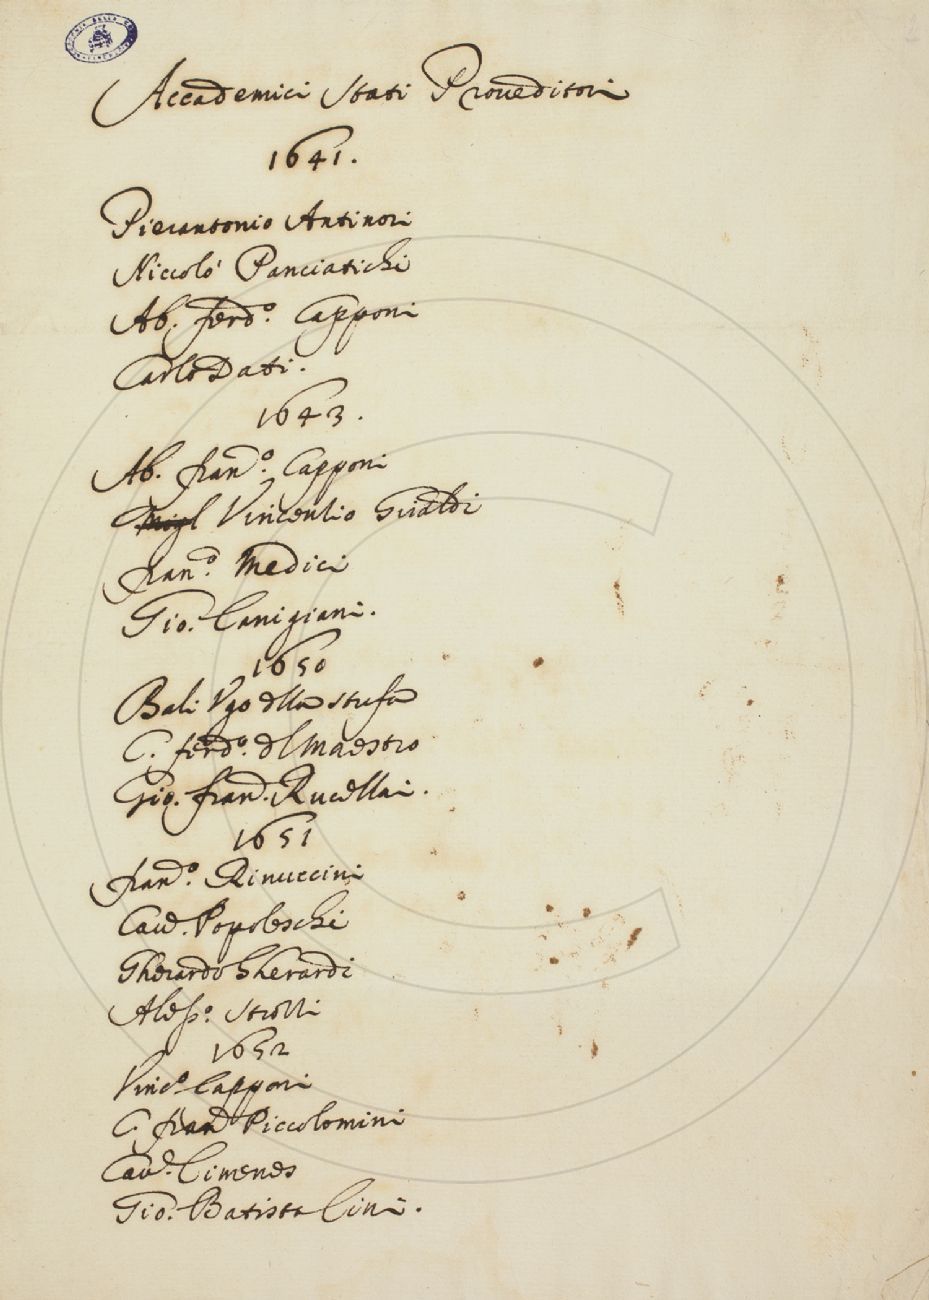 Accademici Stati Proueditori
1641.
Pierantonio Antinori
Niccolò Panciatichi
Ab. ferd.º Capponi
Carlo Dati.
1643.
Ab. fran.º Capponi
Vincentio Giraldi
fran.º Medici
Gio. Canigiani.
1650
Bali Vgo dlla stufa
C. ferd.º dl Maestro
Gio. fran.º Rucellai.
1651
fran.º Rinuccini
Cau.r Popoleschi
Gherardo Gherardi
Aless.º Strozzi
1652
Vinc.º Capponi
C. fran.º Piccolomini
Cau.r Cimenes
Gio. Batista Cini.